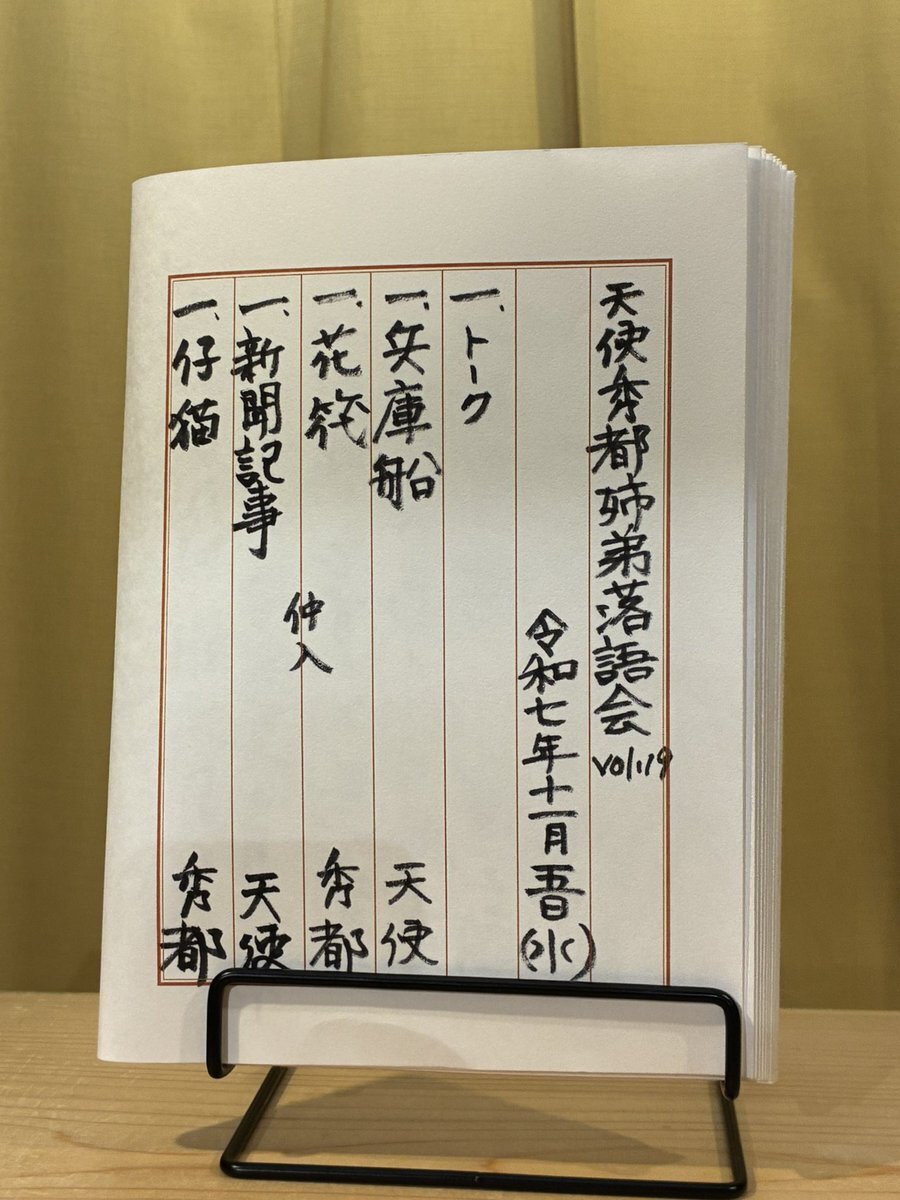 天使秀都姉弟落語会 vol.19
令和七年十一月五日(水)
一、トーク
一、兵庫船 天使
一、花筏 秀都
仲入
一、新聞記事 天使
一、仔猫 秀都